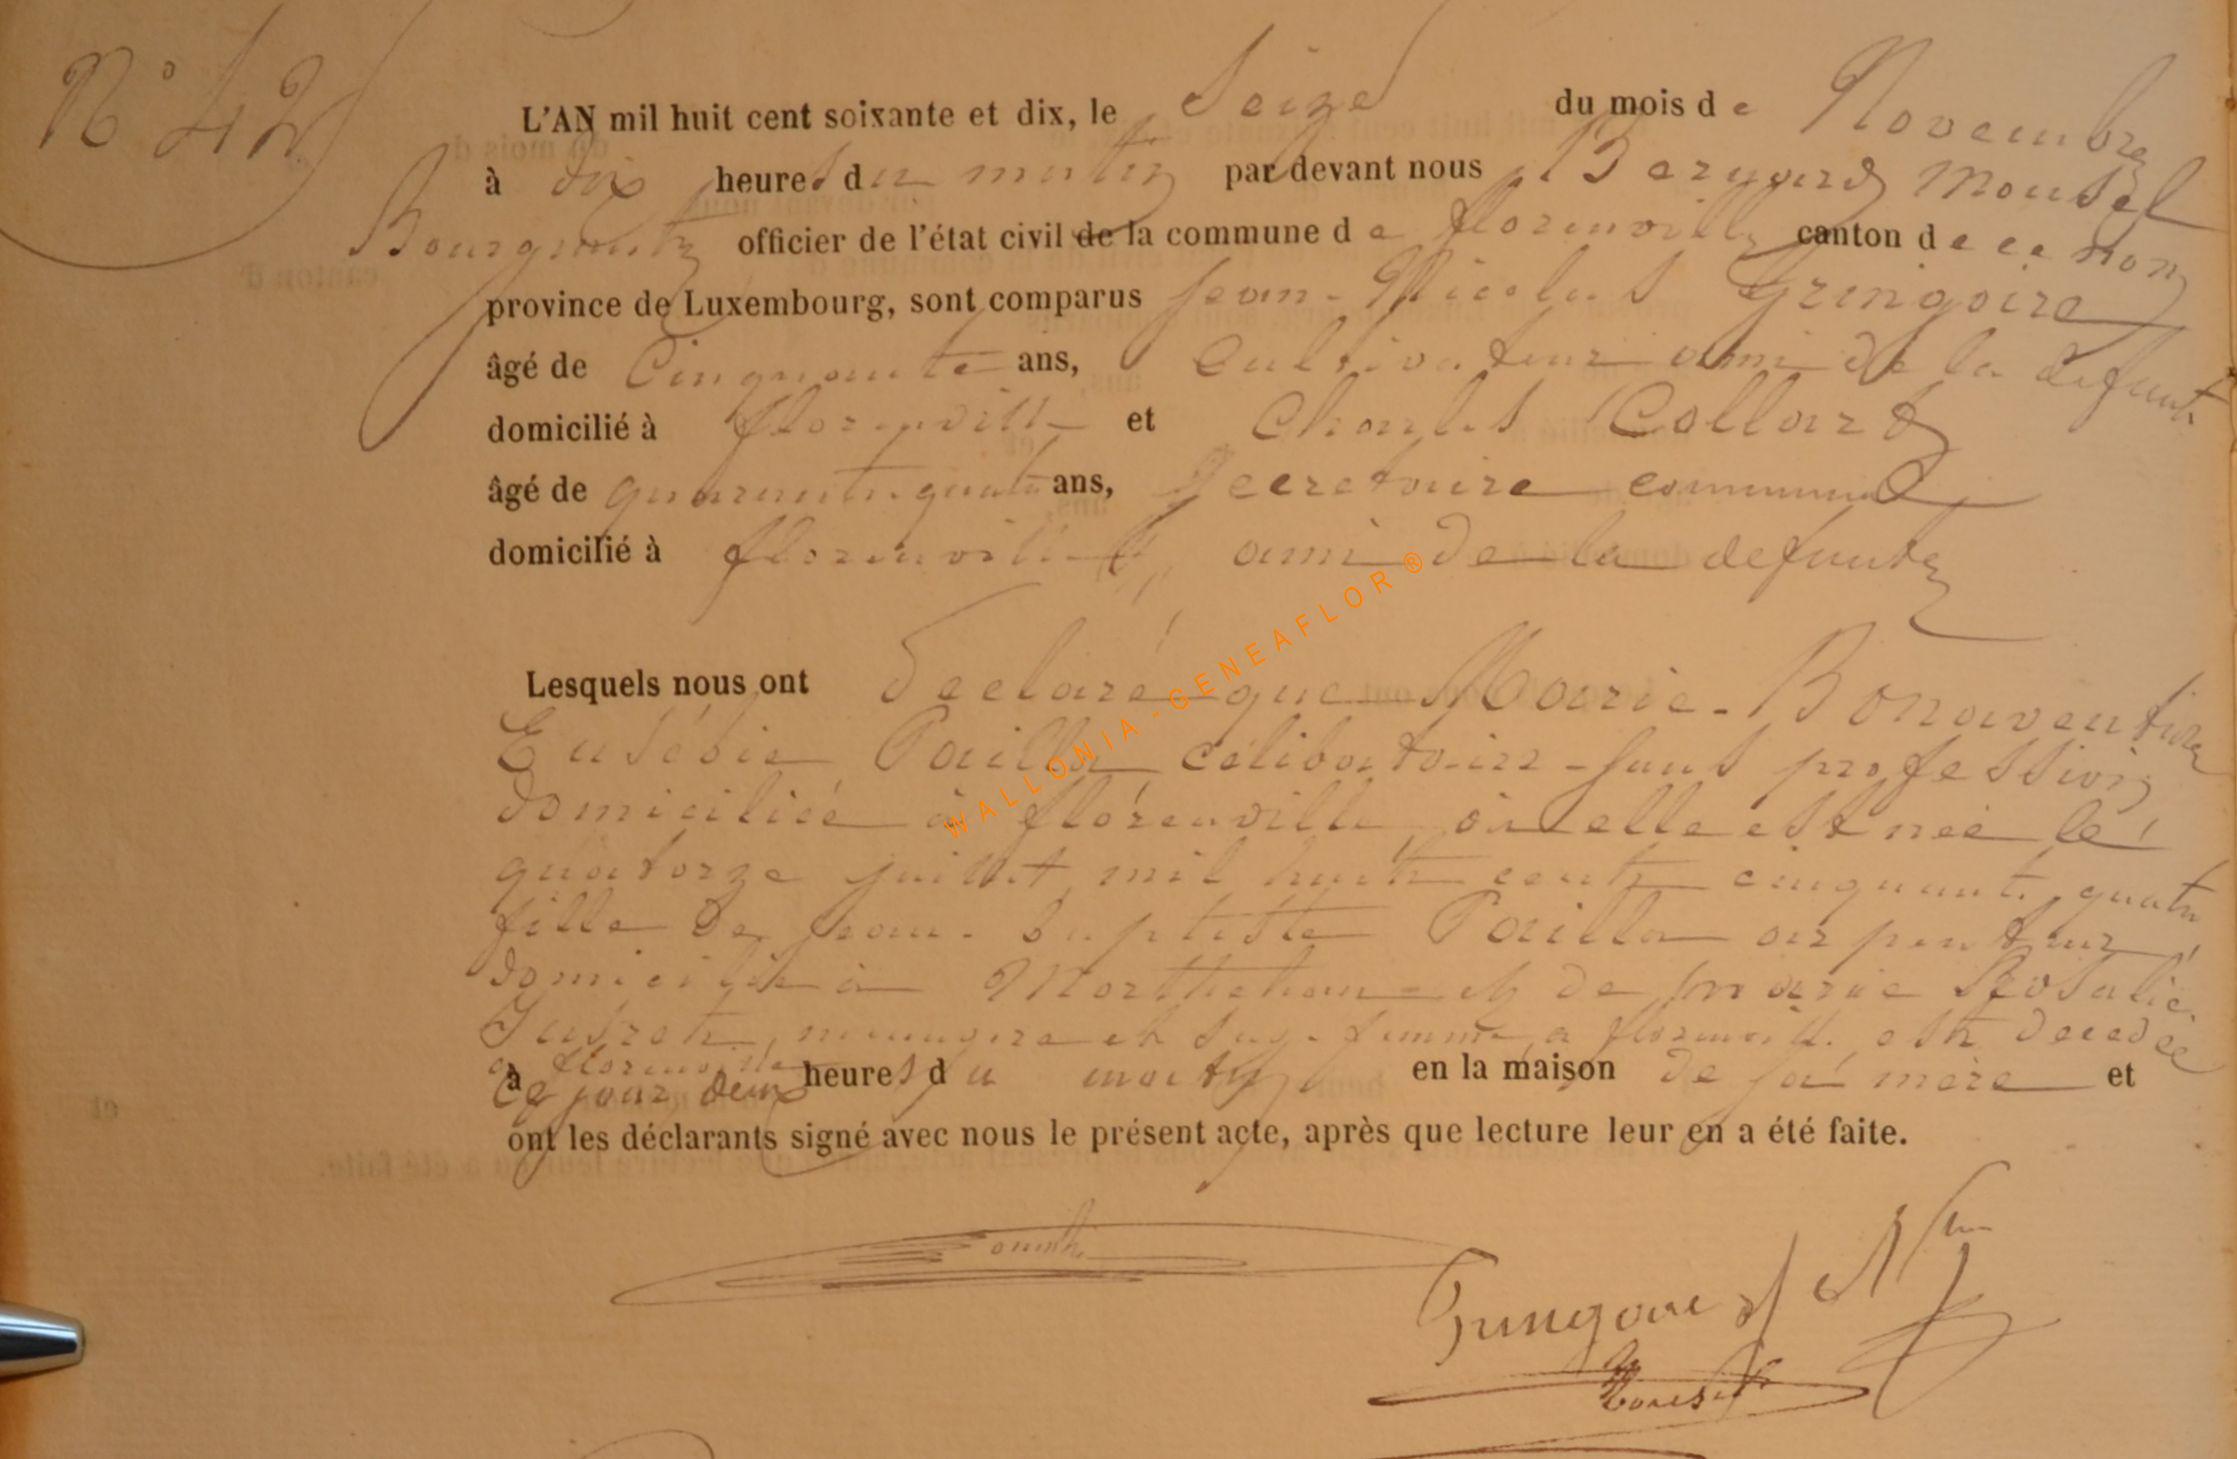 N° 42
L'AN mil huit cent soixante et dix, le Seize du mois de Novembre
à dix heures du matin par devant nous Bernard Mousel
Bourgmestre officier de l'état civil de la commune de florenville canton de ce nom
province de Luxembourg, sont comparus Jean-Nicolas Gringoire
âgé de Cinquante ans, Cultivateur ami de la defunte
domicilié à florenville et Charles Collard
âgé de quarante quatre ans, Secretaire communal
domicilié à florenville, ami de la defunte
Lesquels nous ont declaré que Marie-Bonaventure
Eusébie Pailla célibataire sans profession
domiciliée à florenville, où elle est née le
quatorze juillet mil huit cent cinquante quatre
fille de Jean-baptiste Pailla arpenteur
domicilié à Mortehan et de marie Rosalie
menagere et sage-femme a florenville est decedée
a florenville
à ce jour deux heures du matin en la maison de sa mère et
ont les déclarants signé avec nous le présent acte, après que lecture leur en a été faite.
Gringoire J N
Mousel
WALLONIA-GENEAFLOR®